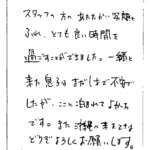 スタッフの方のあたたかい笑顔と
ふれ、とても良い時間を
過ごすことができました。一緒に
来た息子は まだ ご不安で
したが、ここに泊まれてよかった
です。また 沖縄に来るときは
どうぞよろしくお願いします。